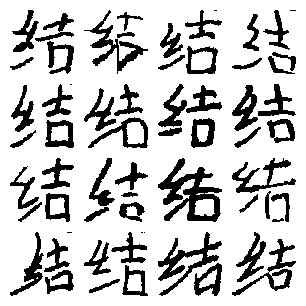 结结结结
结结结结
结结结结
结结结结